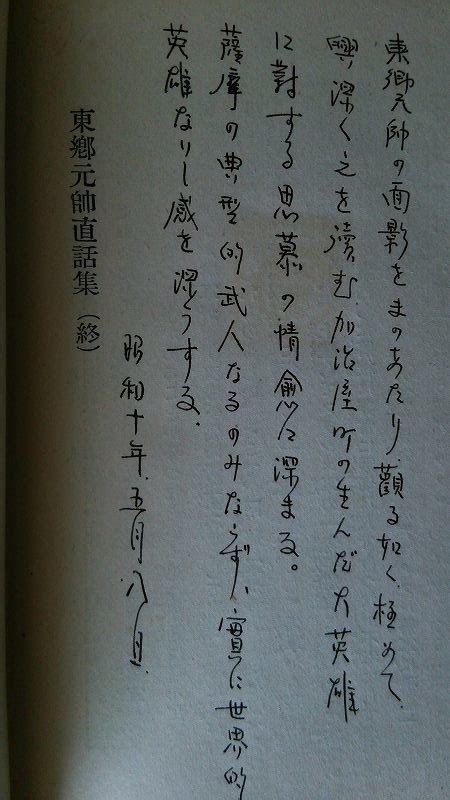 東郷元帥の面影をまのあたり觀る如く、極めて
興深く之を讀む、加治屋町の生んだ大英雄
に對する思慕の情愈々深まる。
薩摩の典型的武人なるのみならず、實に世界的
英雄なりし感を深うする、
昭和十年、五月八日、
東鄉元帥直話集（終）